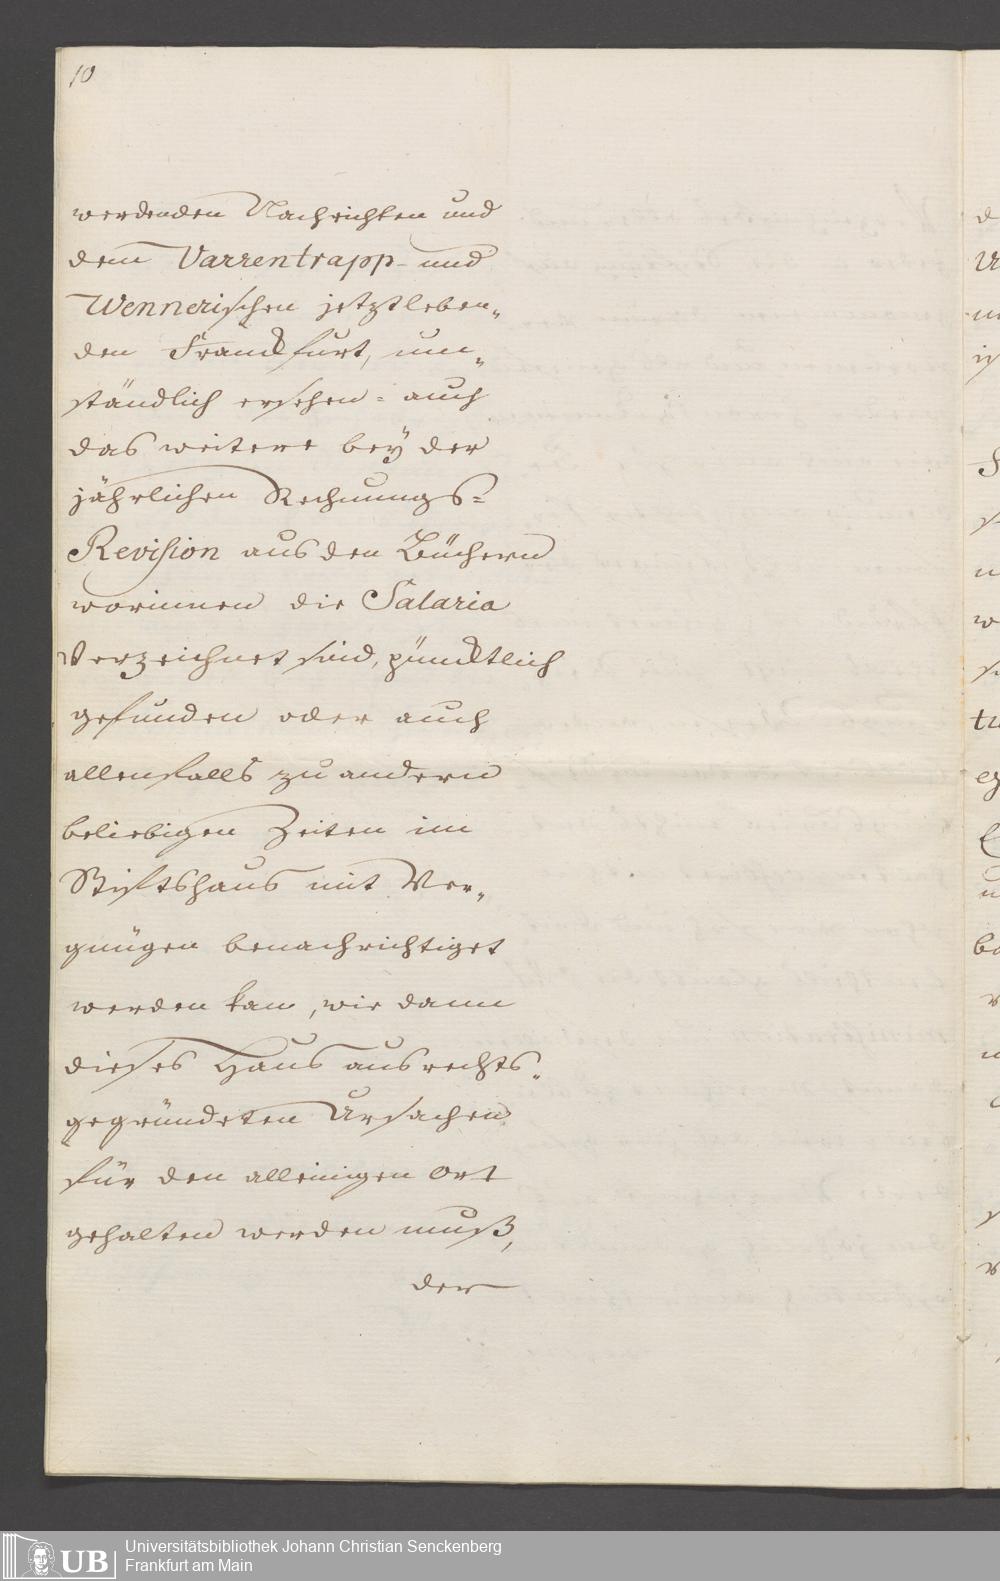 10
werdenden Nachrichten und
dem Varrentrapp- und
Wennerischen jetztleben„
den Franckfurt, um„
ständlich ersehen - auch
das weitere beÿ der
jährlichen Rechnungs=
Revision aus den Büchern
worinnen die Salaria
Verzeichnet sind, püncktlich
gefunden oder auch
allenfalls zu andern
beliebigen Zeiten im
Stiftshaus mit Ver„
gnügen benachrichtiget
werden kan, wie dann
dieses Haus aus rechts„
gegründeten Ursachen
für den alleinigen Ort
gehalten werden muß,
der
UB
Universitätsbibliothek Johann Christian Senckenberg
Frankfurt am Main